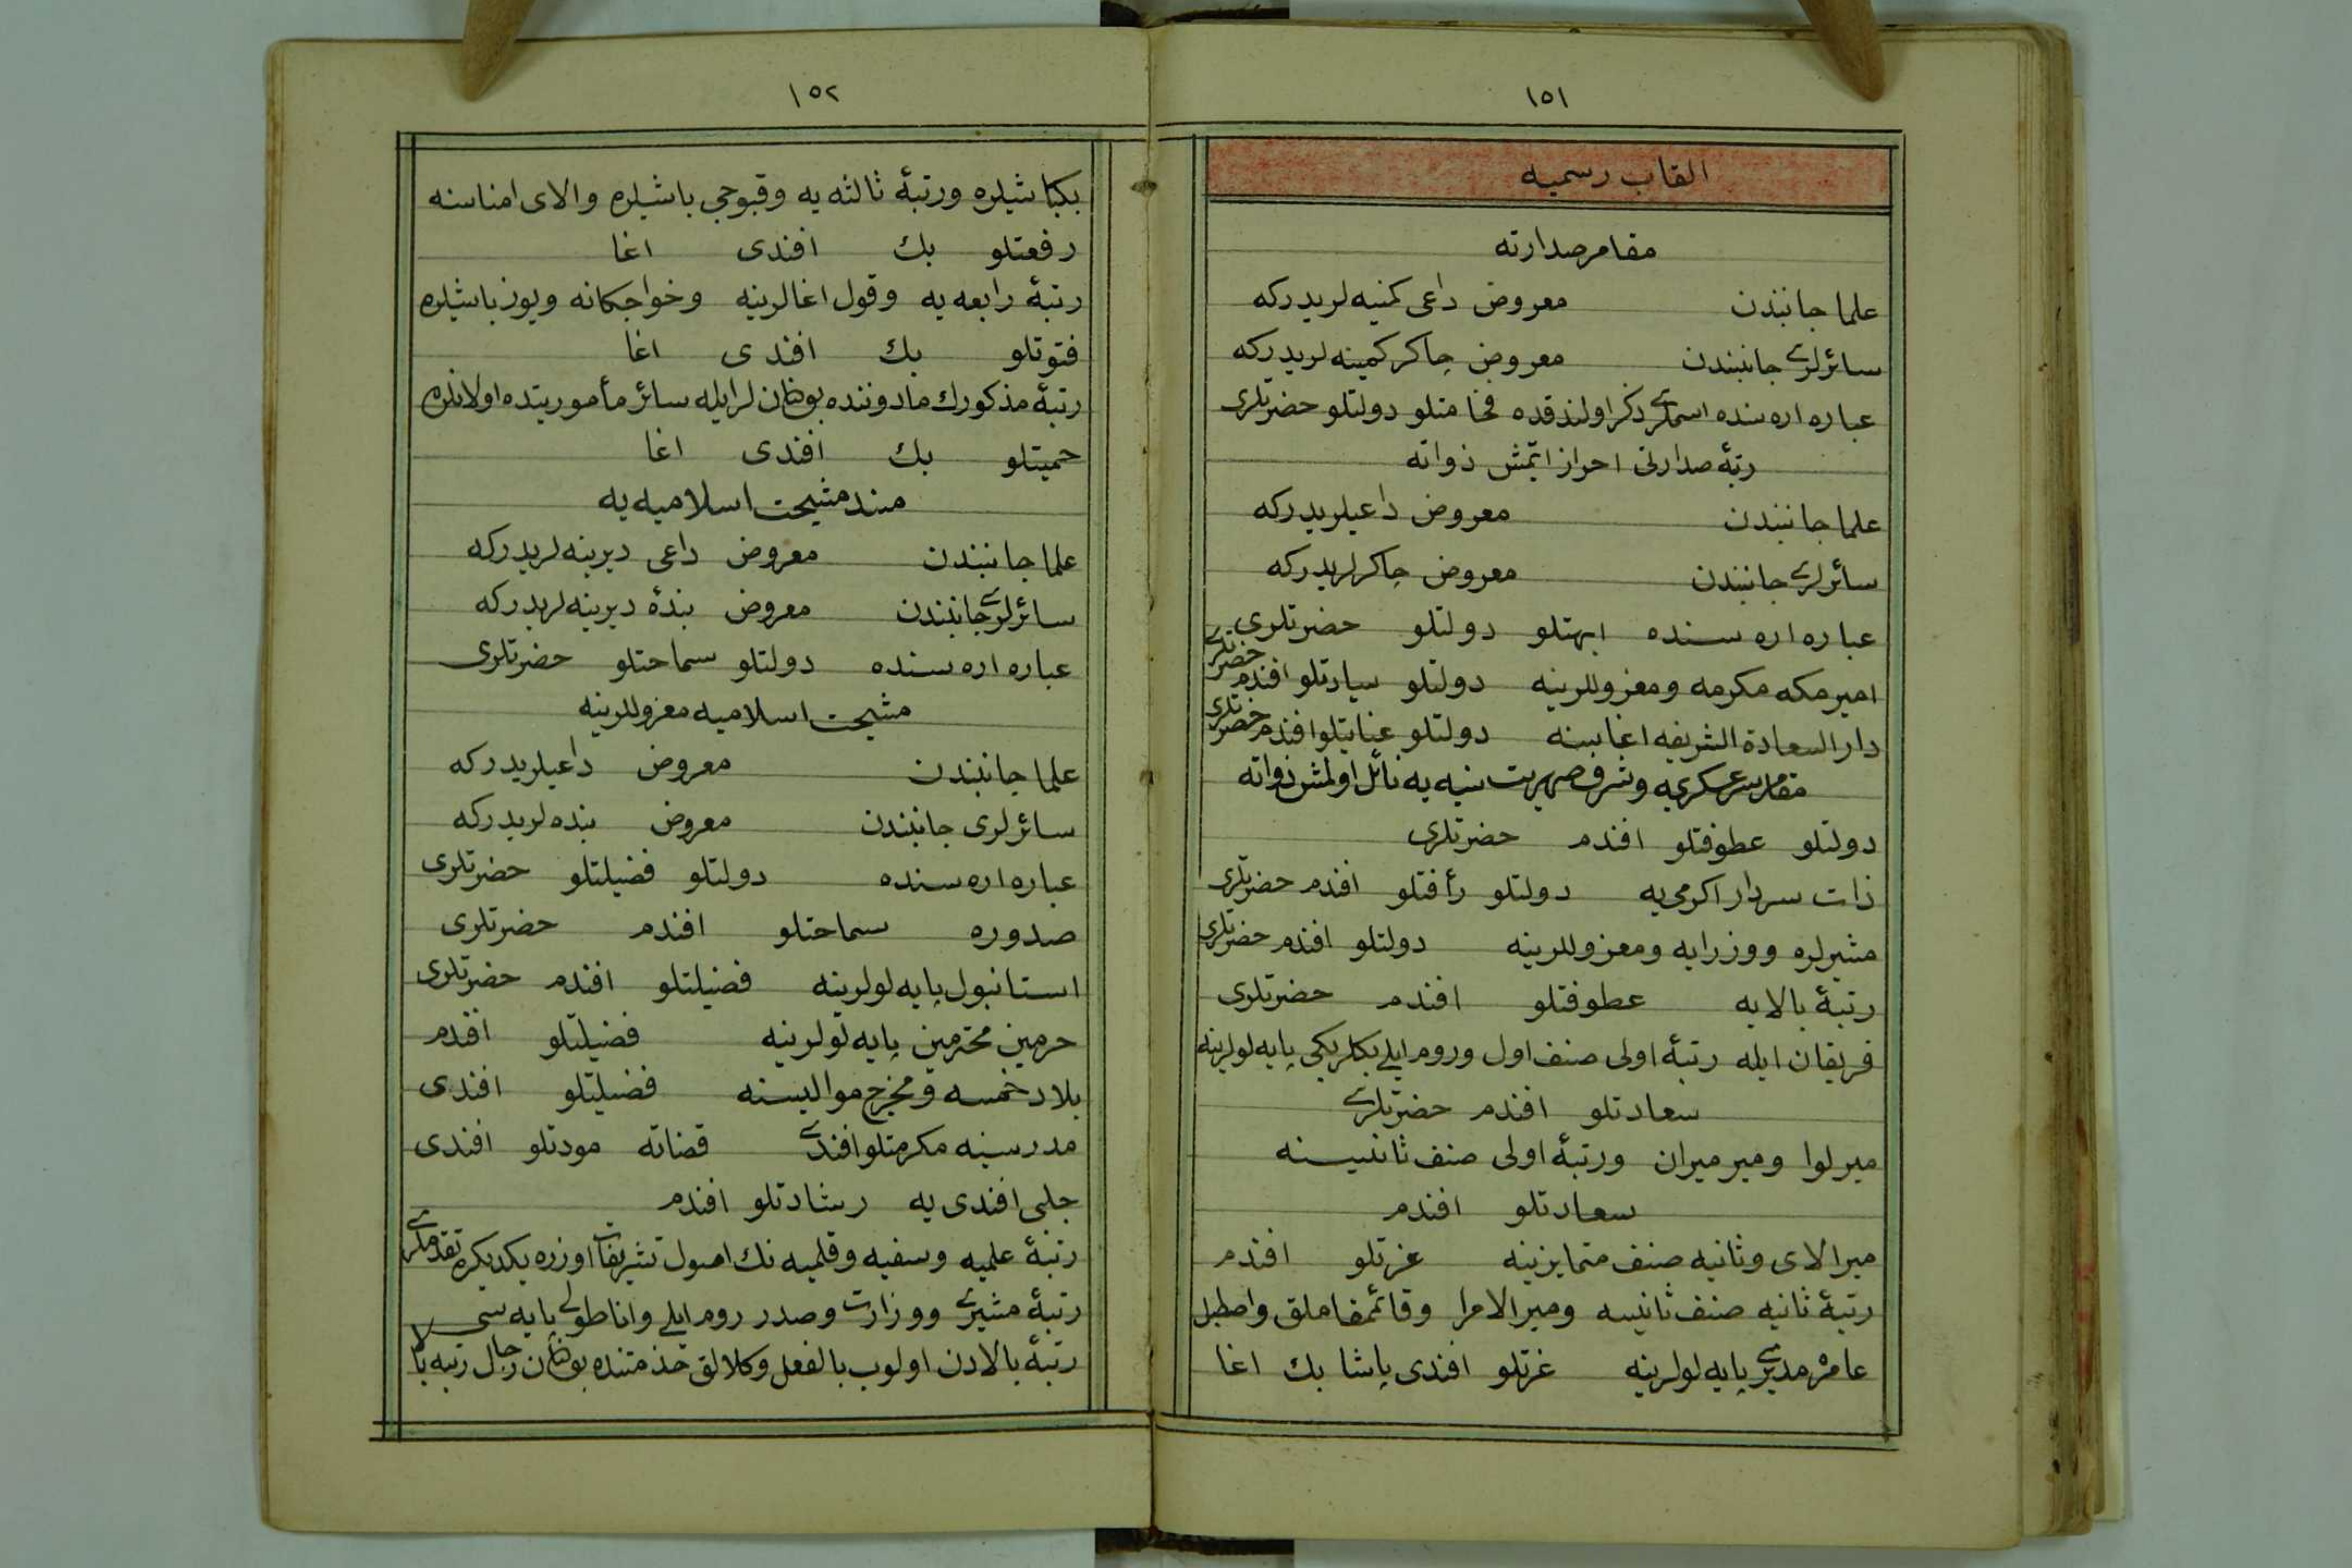 ١٥١
القاب رسميه
مقام صدارته
علما جانبندن معروض داعى كمينه لريدركه
سائرلرى جانبندن معروض چاكر كمينه لريدركه
عباره اره سنده اسملرى ذكر اولندقده فخامتلو دولتلو حضرتلرى
رتبۀ صدارتى احراز ايتمش ذواته
علما جانبندن معروض داعيلريدركه
سائرلرى جانبندن معروض چاكرلريدركه
عباره اره سنده ابهتلو دولتلو حضرتلرى
امير مكه مكرمه ومعزوللرينه دولتلو سيادتلو افندم حضرتلرى
دار السعادة الشريفه اغاسنه دولتلو عنايتلو افندم حضرتلرى
مقام سرعسكرى يه وشرف صهريت سنيه يه نائل اولمش ذواته
دولتلو عطوفتلو افندم حضرتلرى
ذات سردار اكرمى يه دولتلو رأفتلو افندم حضرتلرى
مشيرلره ووزرايه ومعزوللرينه دولتلو افندم حضرتلرى
رتبۀ بالايه عطوفتلو افندم حضرتلرى
فريقان ايله رتبۀ اولى صنف اول وروم ايلى بكلربكى پايه لولرينه
سعادتلو افندم حضرتلرى
ميرلوا ومير ميران ورتبۀ اولى صنف ثانيسنه
سعادتلو افندم
ميرالاى وثانيه صنف متمايزينه عزتلو افندم
رتبۀ ثانيه صنف ثانيسه وميرالامرا وقائمقاملق واصطبل
عامره مديرى پايه لولرينه عزتلو افندى پاشا بك اغا
١٥٢
بكباشيلره ورتبۀ ثالثه يه وقپوجى باشيلره والاى امناسنه
رفعتلو بك افندى اغا
رتبۀ رابعه يه وقول اغالرينه وخواجكانه ويوزباشيلره
فتوتلو بك افندى اغا
رتبۀ مذكورك مادوننده بولنان لرايله سائر مأموريتده اولانلره
حميتلو بك افندى اغا
مسند مشيخت اسلاميه يه
علما جانبندن معروض داعى ديرينه لريدركه
سائرلرى جانبندن معروض بندۀ ديرينه لريدركه
عباره اره سنده دولتلو سماحتلو حضرتلرى
مشيخت اسلاميه معزوللرينه
علما جانبندن معروض داعيلريدركه
سائرلرى جانبندن معروض بنده لريدركه
عباره اره سنده دولتلو فضيلتلو حضرتلرى
صدوره سماحتلو افندم حضرتلرى
استانبول پايه لولرينه فضيلتلو افندم حضرتلرى
حرمين محترمين پايه لولرينه فضيلتلو افندم
بلاد خمسه ومخرج مواليسنه فضيلتلو افندى
مدرسينه مكرمتلو افندى قضاته مودتلو افندى
چلبى افندى يه رشادتلو افندم
رتبۀ علميه وسيفيه وقلميه نك اصول تشريفات اوزره يكديكره تقدملرى
رتبۀ مشيرى ووزارت وصدر روم ايلى واناطولى پايه سى
رتبۀ بالادن اولوب بالفعل وكلالق خدمتنده بولنان رجال رتبه بالا